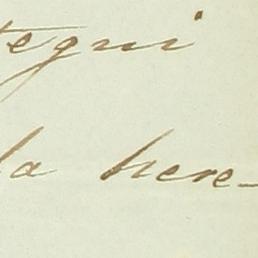 tegni
la here-